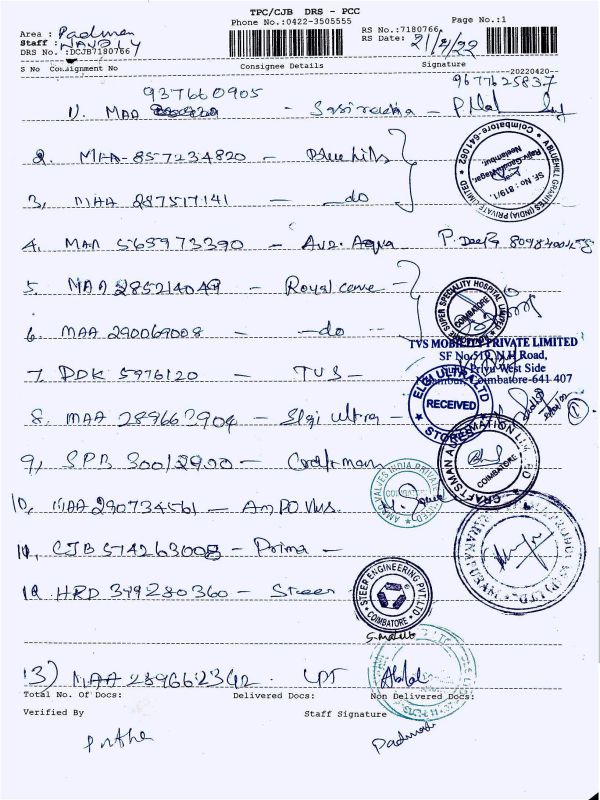 TPC/CJB DRS - PCC
Phone No.:0422-3505555
Page No.:1
Area : Padman
Staff :
DRS No.:DCJB7180766
RS No.:7180766
RS Date: 21/4/22
S No Consignment No Consignee Details Signature
--20220420--
937660905 9677625837
1). MAA - Sasirekha -
2. MAA-857234820 - Blue hills
3, MAA 287517141 - do
4. MAA 565973390 -
5. MAA 285214049 - Royal care
6. MAA 290069008 - do --
7. DDK 5976120 - TVS -
8. MAA 289663904 - Elgi ultra -
9, SPB - Craftsman
10, MAA 290734561 -
11, CJB 574263008 - Prima -
12 HRD 349280360 - Steer
13) MAA 289662342 - LPT
ABLUEHILL GRANITES (INDIA) PRIVATE LIMITED
SF. No : 819/1,
Coimbatore-641 062
SUPER SPECIALITY HOSPITAL
COIMBATORE
TVS MOBILITY PRIVATE LIMITED
SF No.519, N.H Road,
West Side
Coimbatore-641 407
ELGI ULTRA LTD
RECEIVED
STORES
CRAFTSMAN AUTOMATION LIMITED
COIMBATORE
VALVES INDIA PRIVATE
COIMBATORE
STEER ENGINEERING PVT. LTD
COIMBATORE
Total No. Of Docs: Delivered Docs: Non Delivered Docs:
Verified By Staff Signature